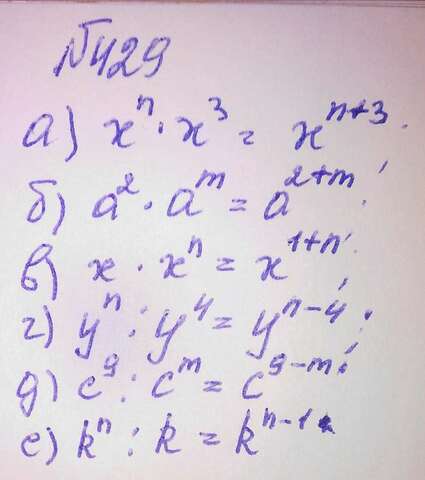 №429
а) xⁿ · x³ = xⁿ⁺³.
б) a² · aᵐ = a²⁺ᵐ;
в) x · xⁿ = x¹⁺ⁿ;
г) yⁿ : y⁴ = yⁿ⁻⁴;
д) c⁹ : cᵐ = c⁹⁻ᵐ;
е) kⁿ : k = kⁿ⁻¹.